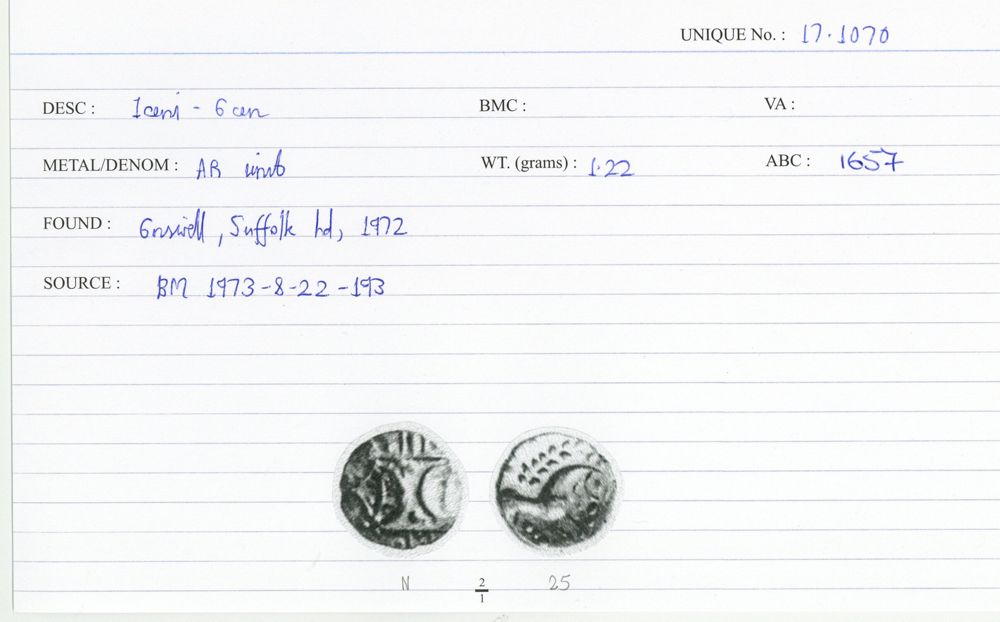 UNIQUE No. : 17.1070
DESC : Iceni - Ecen BMC : VA :
METAL/DENOM : AR unit WT. (grams) : 1.22 ABC : 1657
FOUND : Eriswell, Suffolk hd, 1972
SOURCE : BM 1973-8-22-193
N 2/1 25